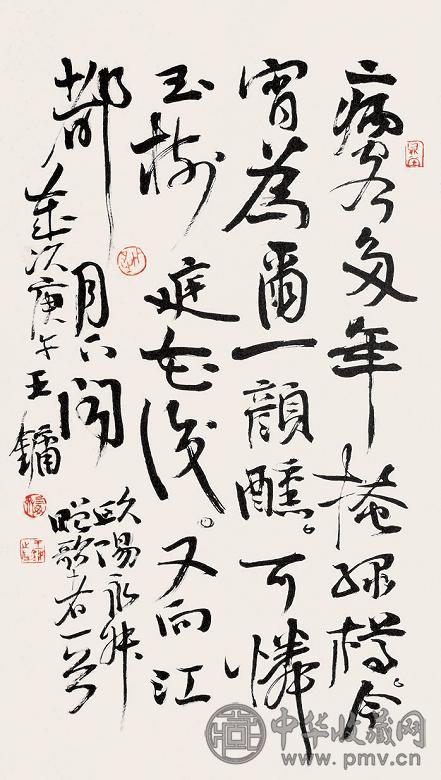 病客多年掩緑樽。今
宵為爾一顔醺。可憐
玉樹庭花後。又向江
都月下聞
歐陽永叔
贈歌者一首
歲次庚午王鏞
中华收藏网
www.pmv.cn